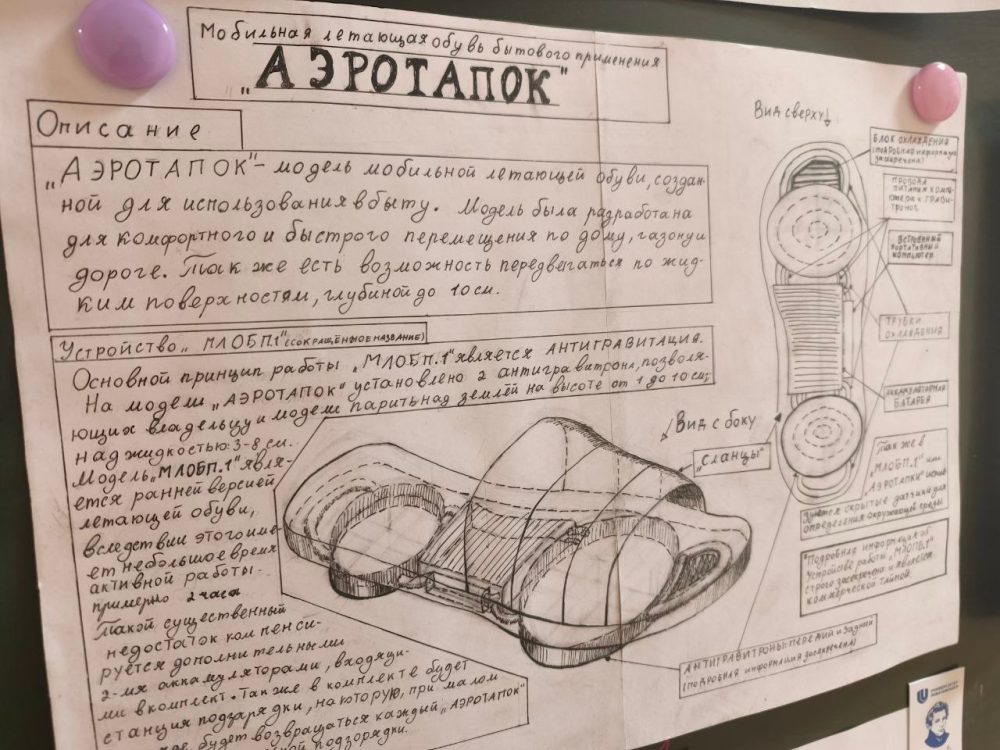 Мобильная летающая обувь бытового применения
„АЭРОТАПОК"
Описание
„АЭРОТАПОК"– модель мобильной летающей обуви, создан-
ной для использования в быту. Модель была разработана
для комфортного и быстрого перемещения по дому, газону и
дороге. Так же есть возможность передвегаться по жид-
ким поверхностям, глубиной до 10 см.
Устройство „МЛОБП.1" (СОКРАЩЁННОЕ НАЗВАНИЕ)
Основной принцип работы „МЛОБП.1" является АНТИГРАВИТАЦИЯ.
На модели „АЭРОТАПОК" установлено 2 антигравитрона, позволя-
ющих владельцу и модели парить над землёй на высоте от 1 до 10 см;
над жидкостью: 3-8 см.
Модель „МЛОБП.1" явля-
ется ранней версией
летающей обуви,
вследствии этого име-
ет небольшое время
активной работы-
примерно 2 часа
Такой существенный
недостаток компенси-
руется дополнительными
2-мя аккамуляторами, входящи-
ми в комплект. Так же в комплекте будет
станция подзарядки, на которую, при малом
будет возвращаться каждый „АЭРОТАПОК"
подзорядки.
Вид с боку
„СЛАНЦЫ"
Вид сверху
БЛОК ОХЛАЖДЕНИЯ
(ПОДРОБНАЯ информация
засекречена)
ПРОВОДА
ПИТАНИЯ КОМПЬ-
ЮТЕРА И ГРАВИ-
ТРОНОВ
ВСТРОЕННЫЙ
ПОРТАТИВНЫЙ
КОМПЬЮТЕР
ТРУБКИ
ОХЛАЖДЕНИЯ
АККАМУЛЯТОРНАЯ
БАТАРЕЯ
Так же в
„МЛОБП.1" или
„АЭРОТАПКИ"
скрытые датчики для
определения окружающей среды
"Подробная информация об
устройстве работы „МЛОПБ.1"
строго засекречена и является
коммерческой тайной
АНТИГРАВИТРОНЫ: ПЕРЕДНИЙ и ЗАДНИЙ
(ПОДРОБНАЯ информация засекречена)
УНИВЕРСИТЕТ